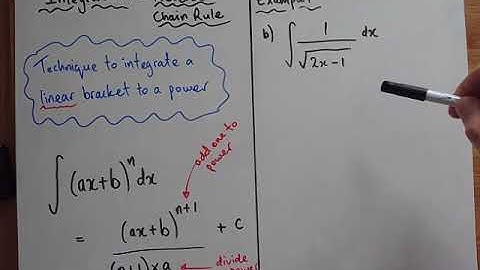 Chain Rule
Technique to integrate a
linear bracket to a power
∫ (ax+b)^n dx
add one to
power
= (ax+b)^(n+1) / (n+1) × a + C
divide
b) ∫ 1/√(2x-1) dx